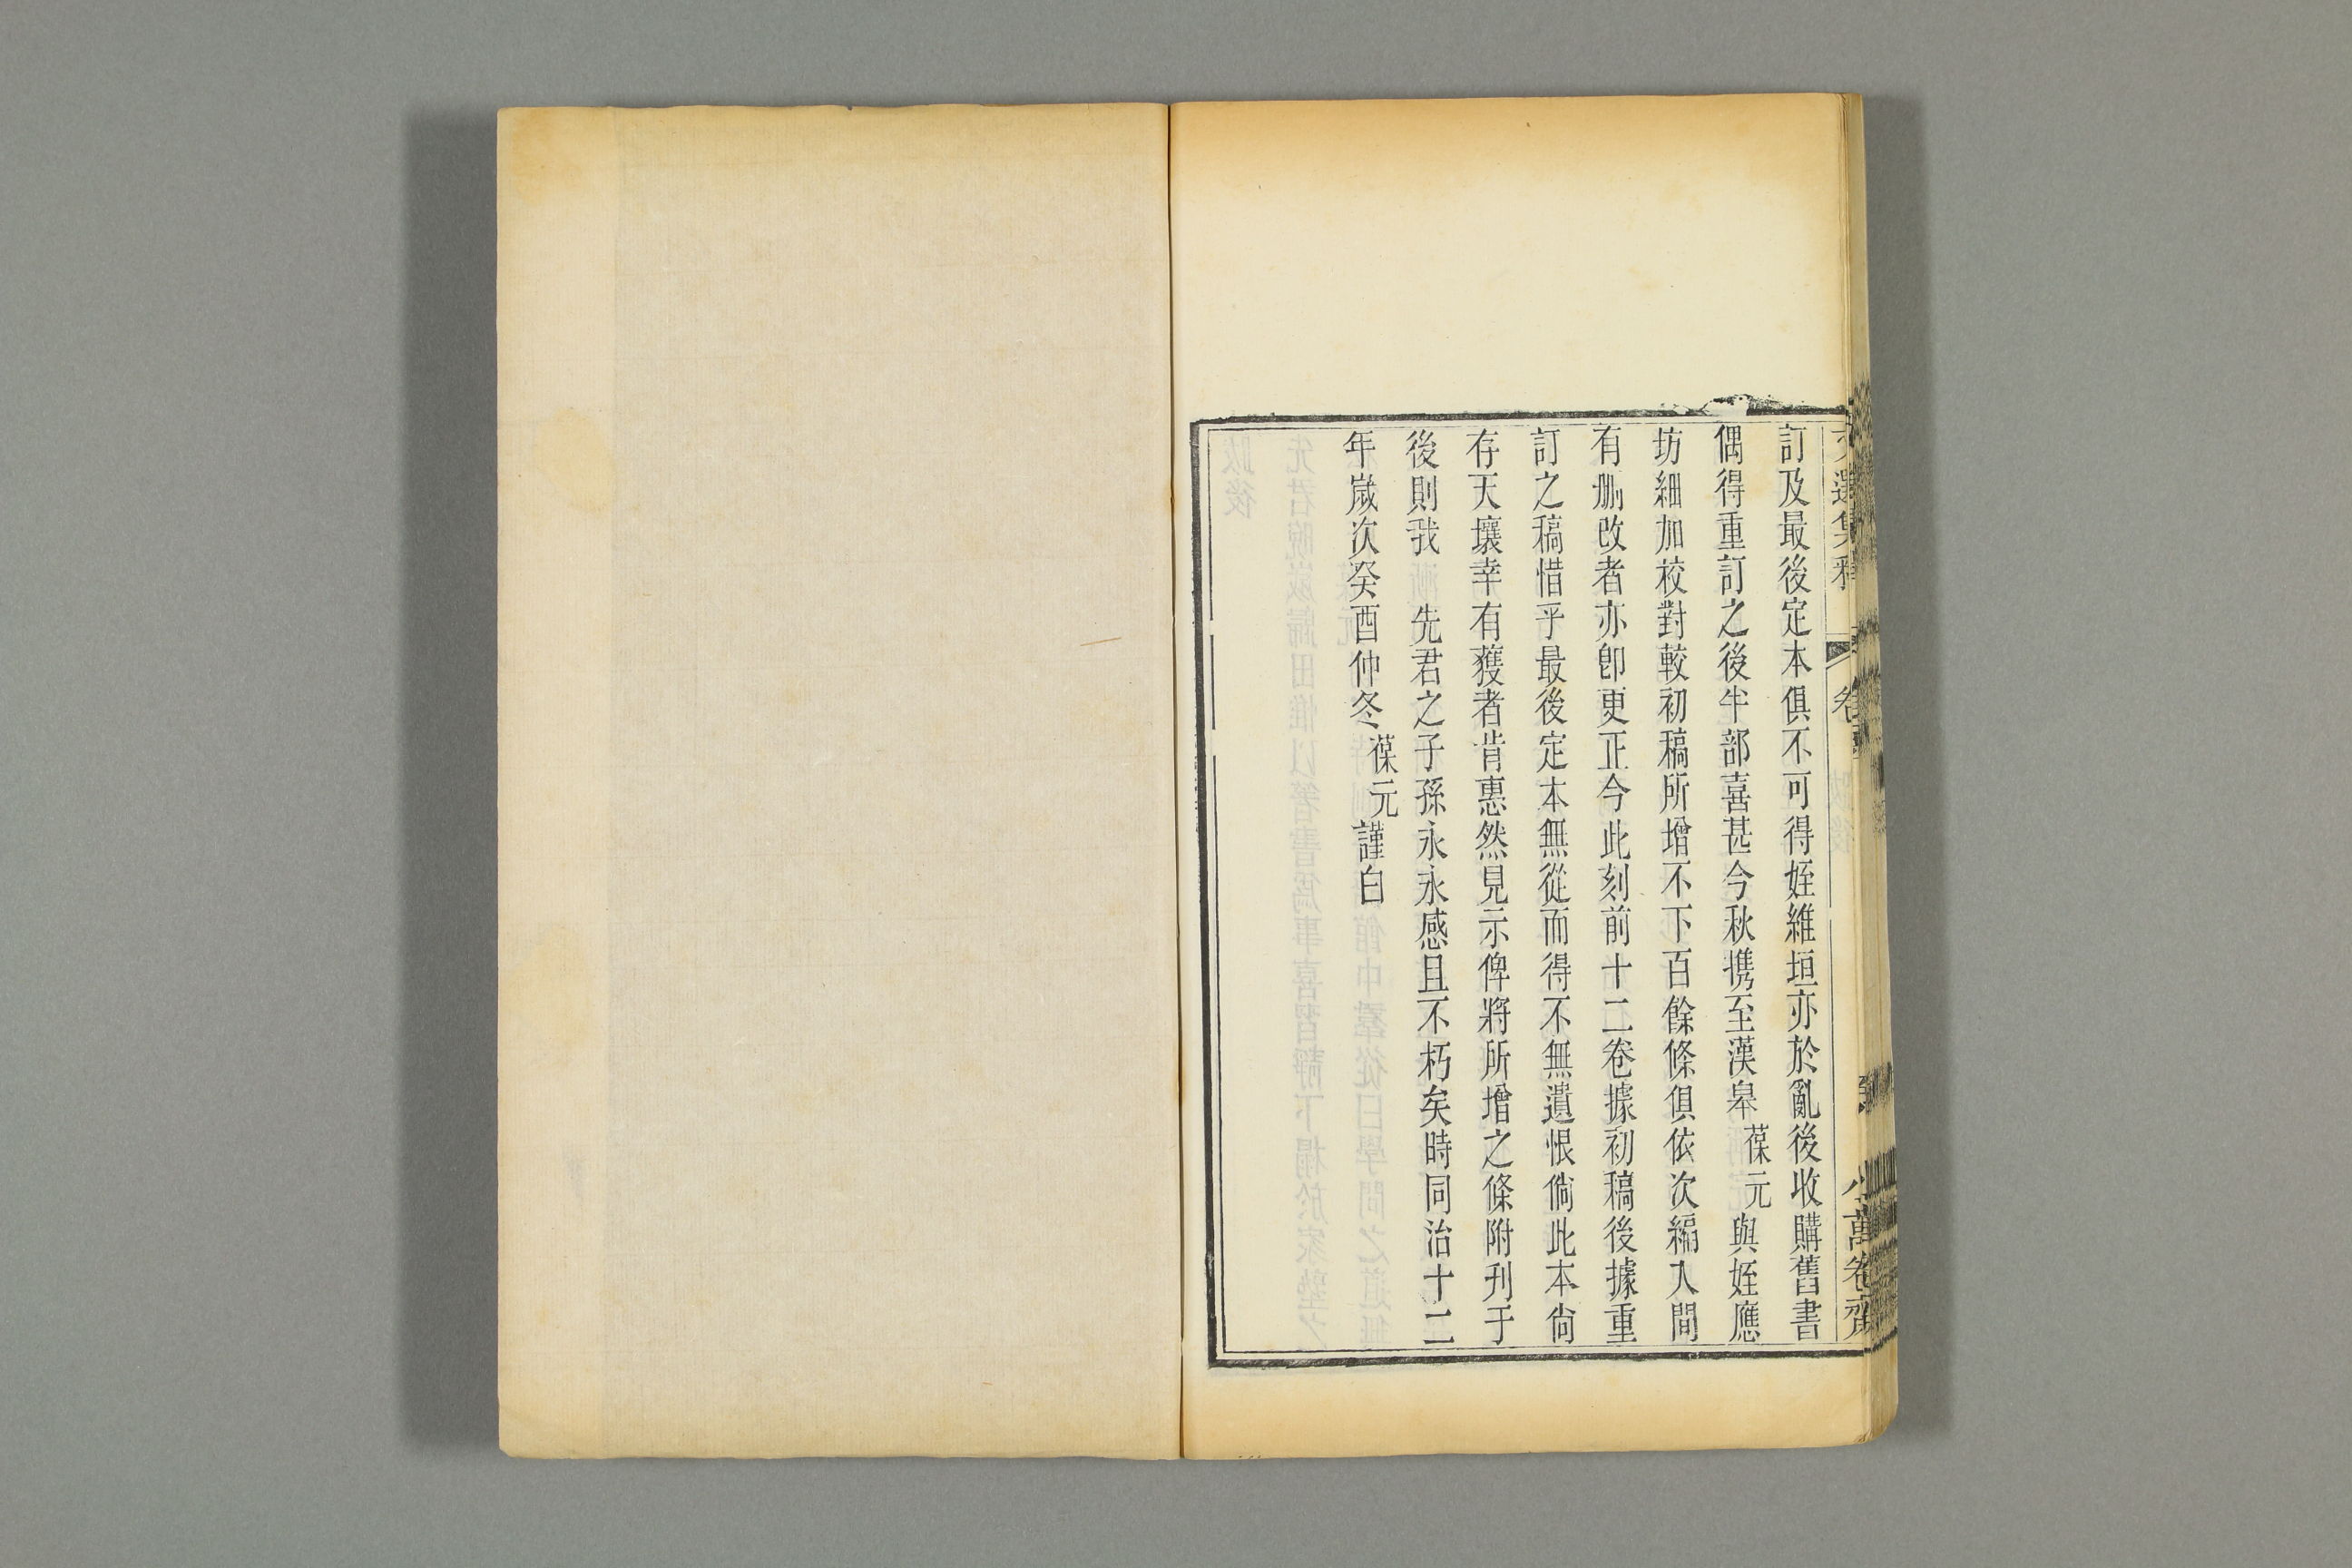 選集釋 卷 小萬卷齋
訂及最後定本俱不可得姪維垣亦於亂後收購舊書
偶得重訂之後半部喜甚今秋攜至漢皋葆元與姪應
坊細加校對較初稿所增不下百餘條俱依次編入間
有刪改者亦卽更正今此刻前十二卷據初稿後據重
訂之稿惜乎最後定本無從而得不無遺恨倘此本尙
存天壤幸有獲者肯惠然見示俾將所增之條附刊于
後則我 先君之子孫永永感且不朽矣時同治十二
年嵗次癸酉仲冬葆元謹白